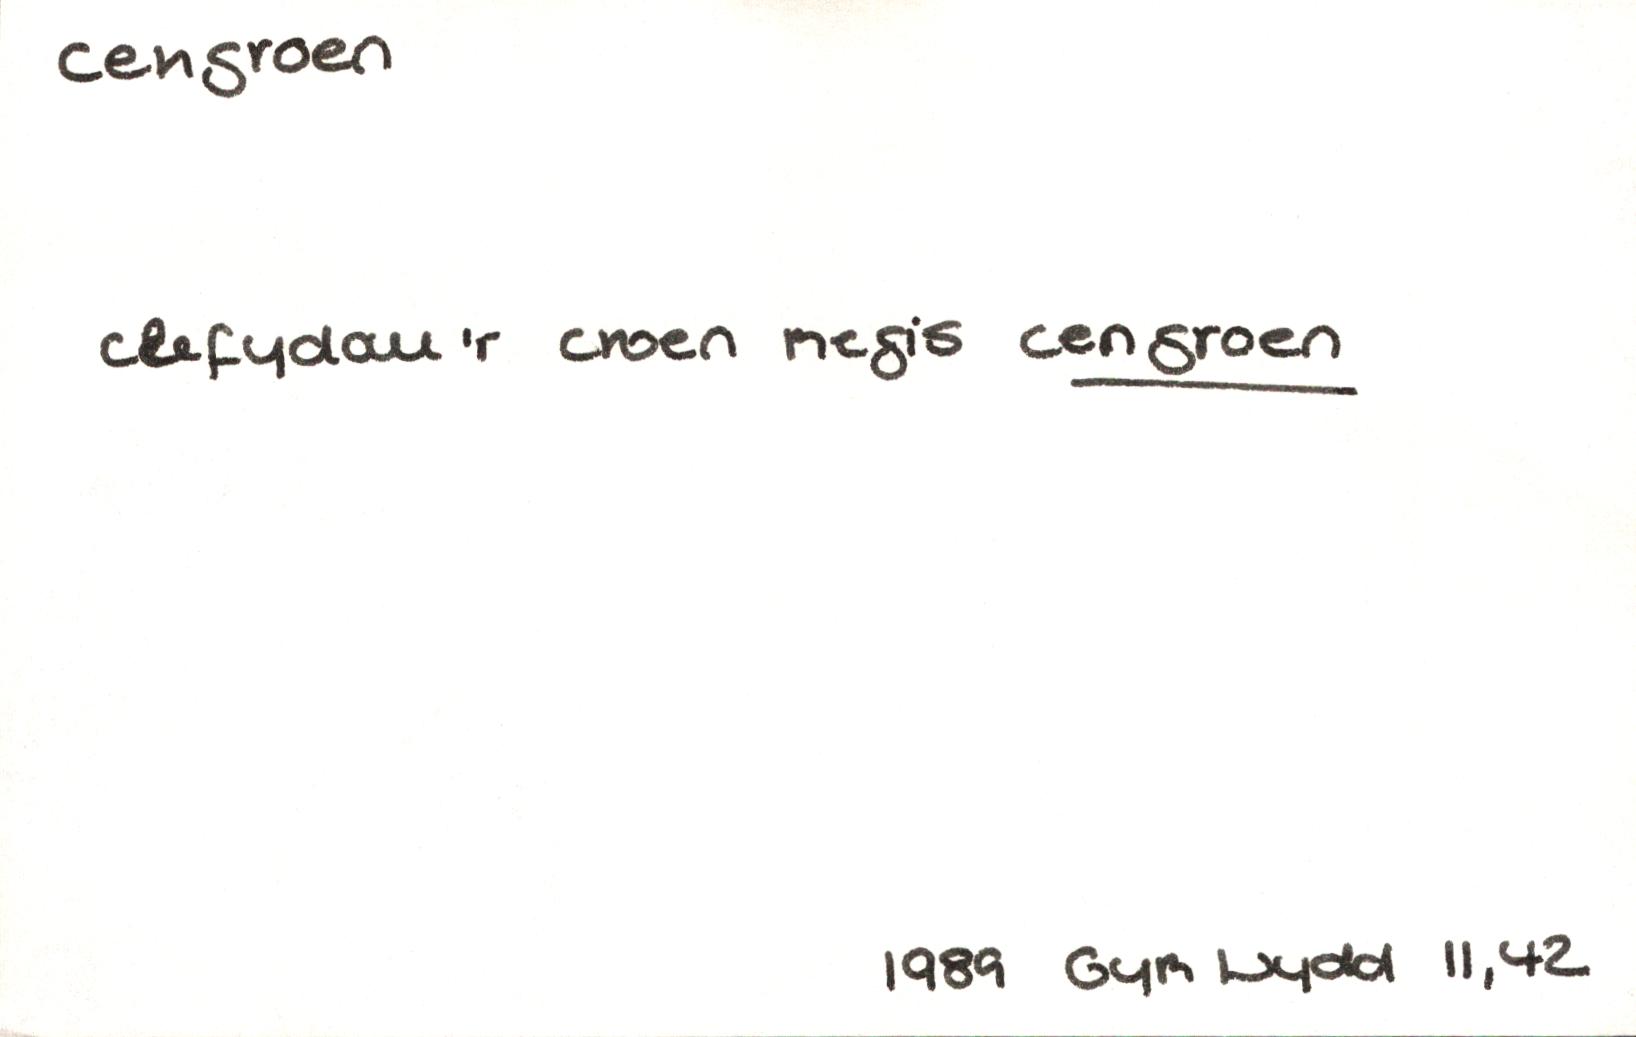 cengroen
clefydau'r croen megis cengroen
1989 Gym Wydd 11,42